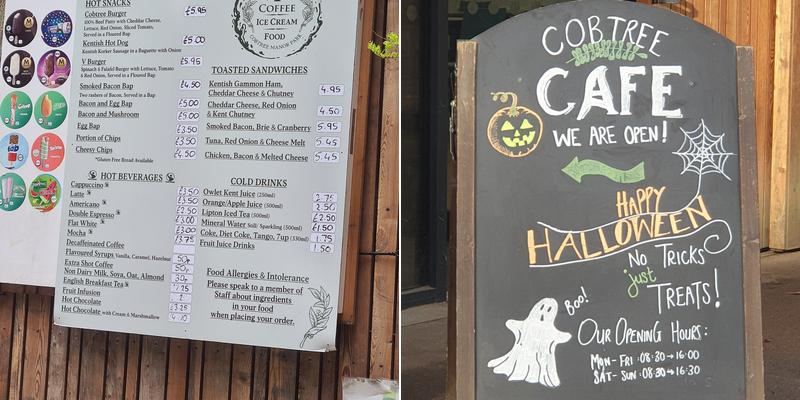 HOT SNACKS
Cobtree Burger £5.95
100% Beef Patty with Cheddar Cheese,
Lettuce, Red Onion, Sliced Tomato,
Served in a Floured Bap
Kentish Hot Dog £5.00
Kentish Korker Sausage in a Baguette with Onion
V Burger £5.95
Spinach & Falafel Burger with Lettuce, Tomato
& Red Onion, Served in a Floured Bap
Smoked Bacon Bap £4.50
Two rashers of Bacon, Served in a Bap
Bacon and Egg Bap £5.00
Bacon and Mushroom £5.00
Egg Bap £3.50
Portion of Chips £3.50
Cheesy Chips £4.50
*Gluten Free Bread Available
HOT BEVERAGES
Cappuccino £3.50
Latte £3.50
Americano
Double Espresso
Flat White
Mocha £3.75
Decaffeinated Coffee
Flavoured Syrups Vanilla, Caramel, Hazelnut 50p
Extra Shot Coffee 50p
Non Dairy Milk, Soya, Oat, Almond
English Breakfast Tea
Fruit Infusion
Hot Chocolate
Hot Chocolate with Cream & Marshmallow
COFFEE
ICE CREAM
FOOD
COBTREE MANOR PARK
TOASTED SANDWICHES
Kentish Gammon Ham,
Cheddar Cheese & Chutney 4.95
Cheddar Cheese, Red Onion
& Kent Chutney 4.50
Smoked Bacon, Brie & Cranberry 5.95
Tuna, Red Onion & Cheese Melt 5.45
Chicken, Bacon & Melted Cheese 5.45
COLD DRINKS
Owlet Kent Juice (250ml) 2.75
Orange/Apple Juice (500ml) 2.50
Lipton Iced Tea (500ml) £2.50
Mineral Water Still/ Sparkling (500ml) £1.50
Coke, Diet Coke, Tango, 7up (330ml) 1.75
Fruit Juice Drinks 1.50
Food Allergies & Intolerance
Please speak to a member of
Staff about ingredients
in your food
when placing your order.
COBTREE
CAFE
WE ARE OPEN!
HAPPY
HALLOWEEN
NO TRICKS
just
TREATS!
BOO!
OUR OPENING HOURS:
MON - FRI : 08:30 → 16:00
SAT - SUN : 08:30 → 16:30